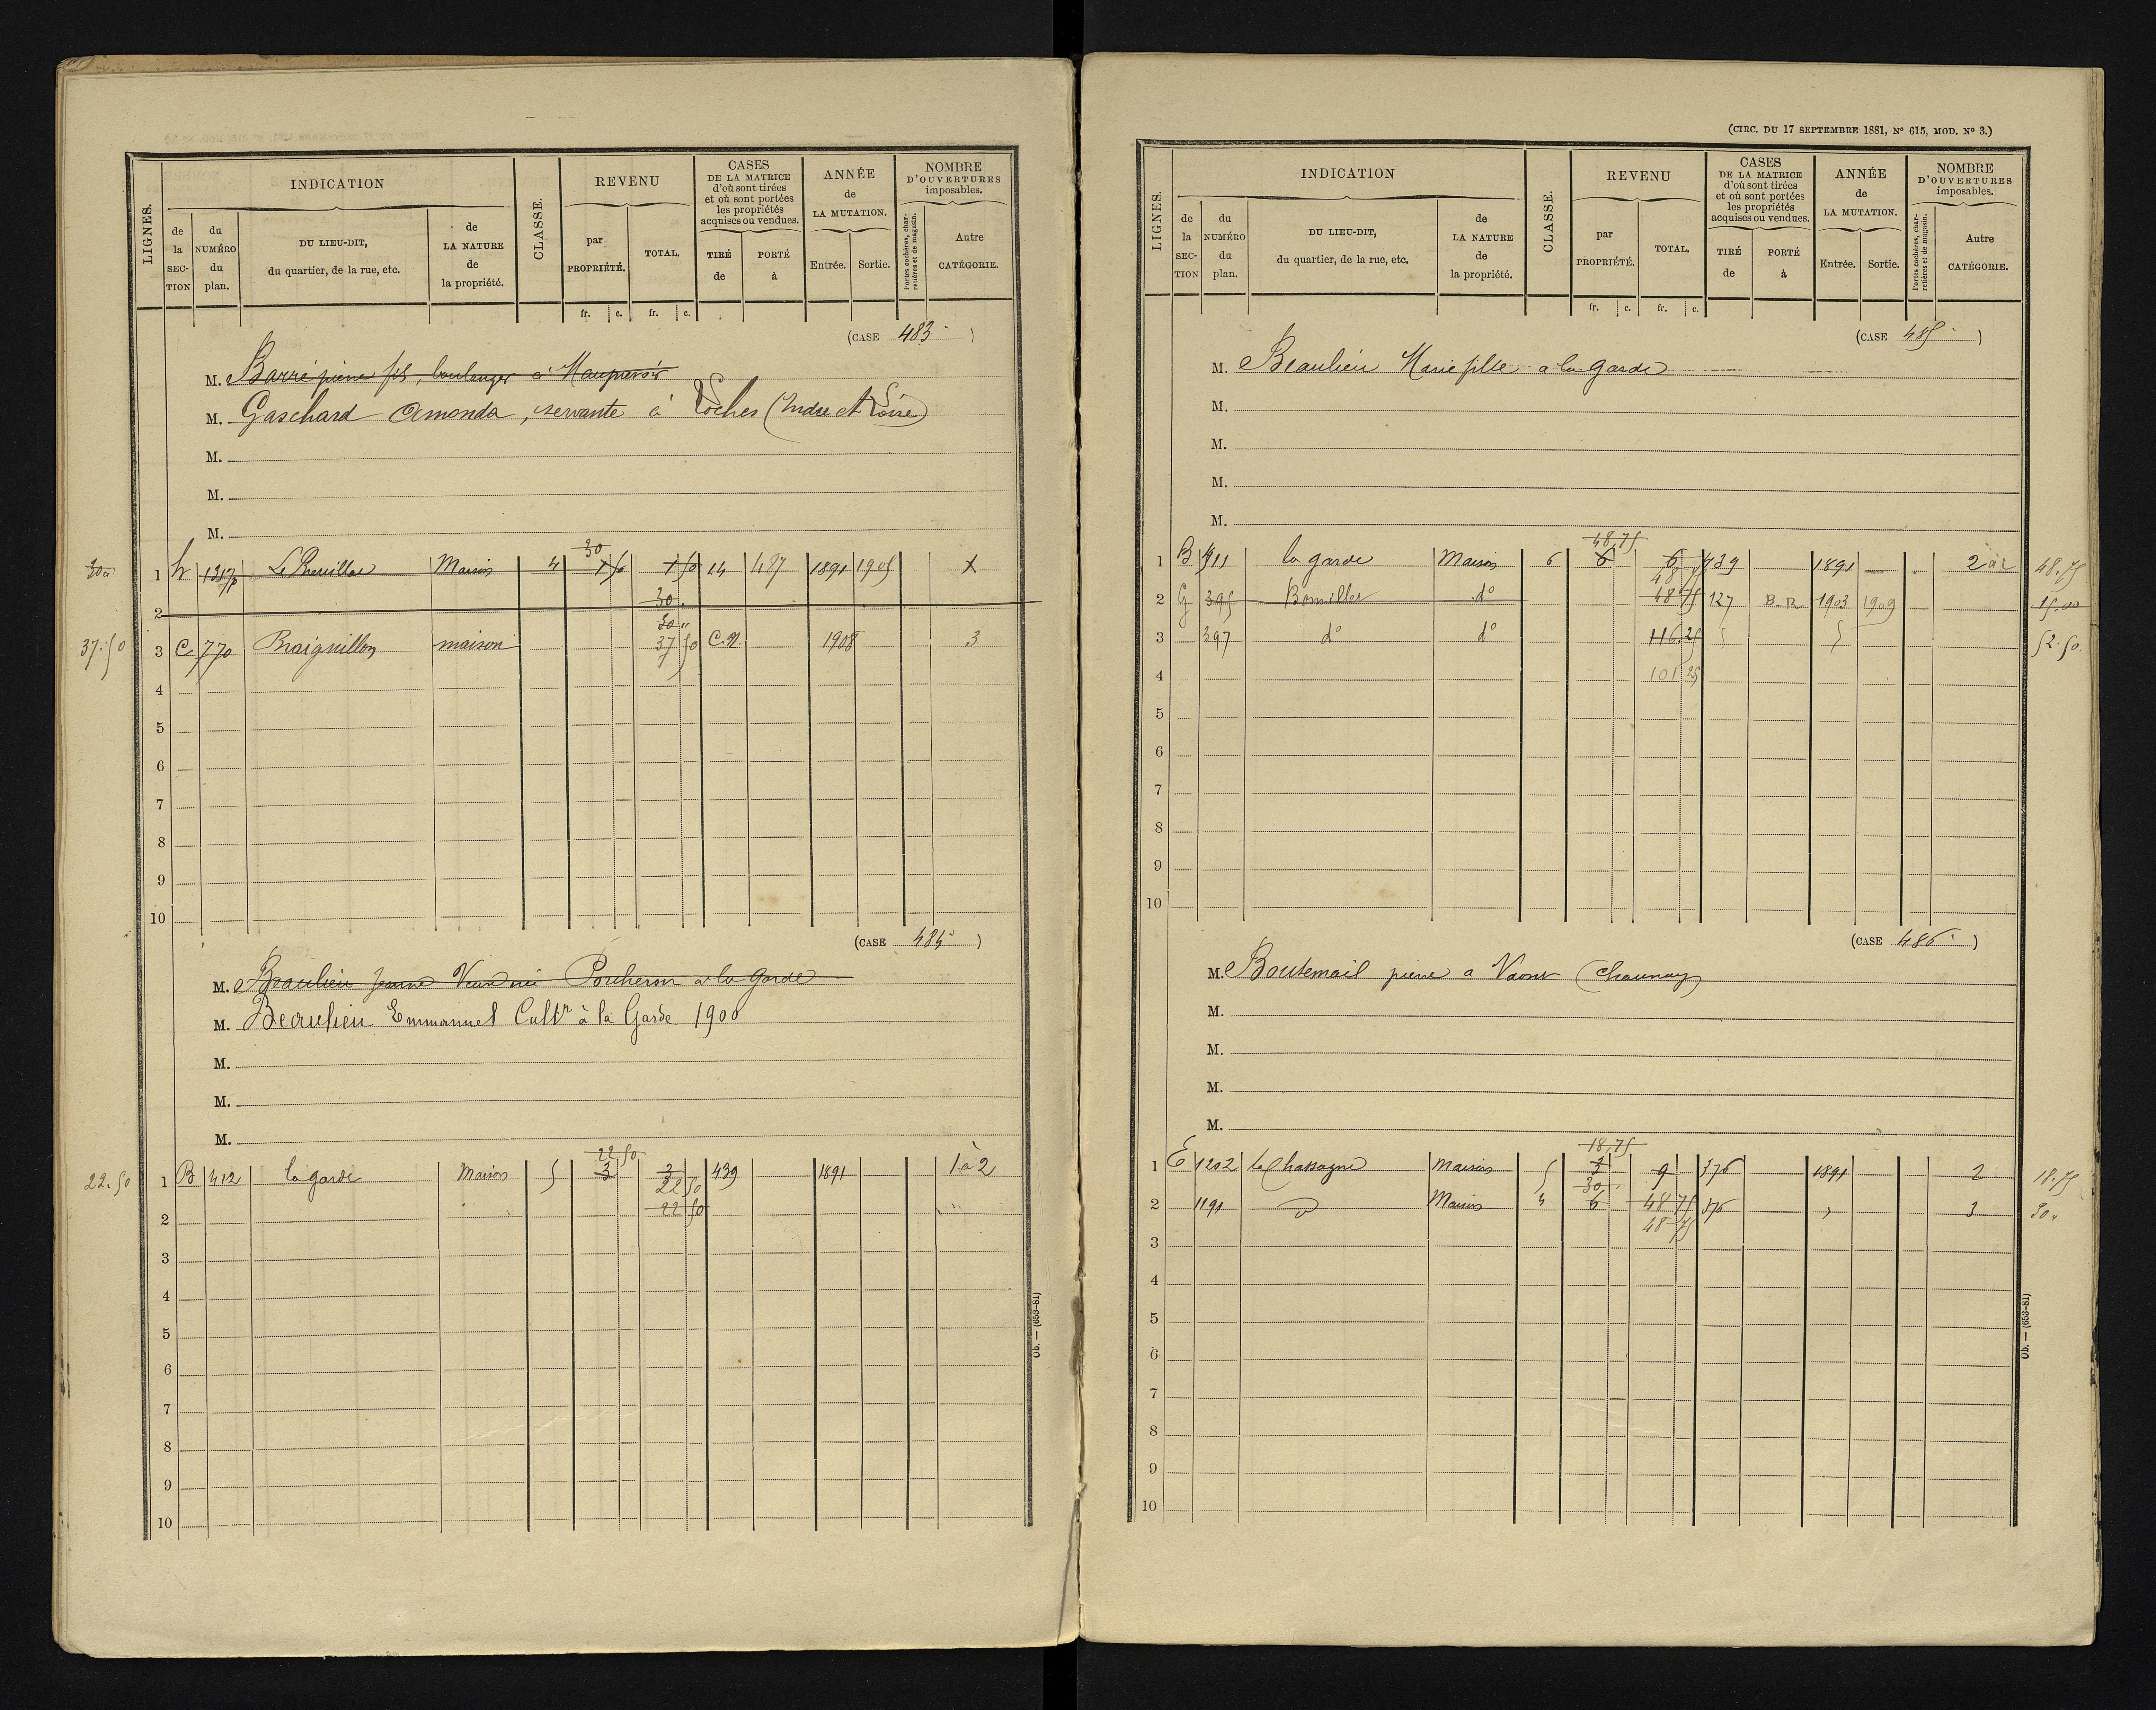 LIGNES.
INDICATION
de la SECTION
du NUMÉRO du plan.
DU LIEU-DIT, du quartier, de la rue, etc.
de LA NATURE de la propriété.
CLASSE.
REVENU
par PROPRIÉTÉ.
TOTAL.
CASES DE LA MATRICE d'où sont tirées et où sont portées les propriétés acquises ou vendues.
TIRÉ de
PORTÉ à
ANNÉE de LA MUTATION.
Entrée.
Sortie.
NOMBRE D'OUVERTURES imposables.
Portes cochères, charretières et de magasin.
Autre CATÉGORIE.
fr. c. fr. c.
(CASE 483 )
M. Barré pierre fils, boulanger à
M. Gaschard Amonda, servante à Loches (Indre et Loire)
M.
M.
M.
30
1 h Maison 4 7 50 7 50 14 487 1891 1905 X
30
2
30 "
37.50
3 C 770 Braiguillon maison 37 50 C.N. 1908 3
4
5
6
7
8
9
10
(CASE 484 )
M. Beaulieu Jeanne Veuve née Porcheron a la Garde
M. Beaulieu Emmanuel Cultr à la Garde 1900
M.
M.
M.
22 50
22.50
1 B 412 la garde Maison 5 3 3 439 1891 1 à 2
22 50
2 22 50
3
4
5
6
7
8
9
10
Ob. — (653-81)
(CIRC. DU 17 SEPTEMBRE 1881, N° 615, MOD. N° 3.)
LIGNES.
INDICATION
de la SECTION
du NUMÉRO du plan.
DU LIEU-DIT, du quartier, de la rue, etc.
de LA NATURE de la propriété.
CLASSE.
REVENU
par PROPRIÉTÉ.
TOTAL.
CASES DE LA MATRICE d'où sont tirées et où sont portées les propriétés acquises ou vendues.
TIRÉ de
PORTÉ à
ANNÉE de LA MUTATION.
Entrée.
Sortie.
NOMBRE D'OUVERTURES imposables.
Portes cochères, charretières et de magasin.
Autre CATÉGORIE.
fr. c. fr. c.
(CASE 485 )
M. Beaulieu Marie fille a la garde
M.
M.
M.
M.
48,75
1 B 411 la garde Maison 6 6 6 439 1891 2 à 2 48.75
48 75
2 G 395 Bomiller do 48 75 127 B.R. 1903 1909 15.00
3 397 do do 116.25 52.50
4 101 25
5
6
7
8
9
10
(CASE 486 )
M. Boutemail pierre a Vaour (Chaunay)
M.
M.
M.
M.
18,75
1 E 1202 la Chassagne maison 5 3 9 376 1891 2 18.75
30
2 1191 Maison 4 6 48 75 376 3 30 "
48 75
3
4
5
6
7
8
9
10
Ob. — (653-81)